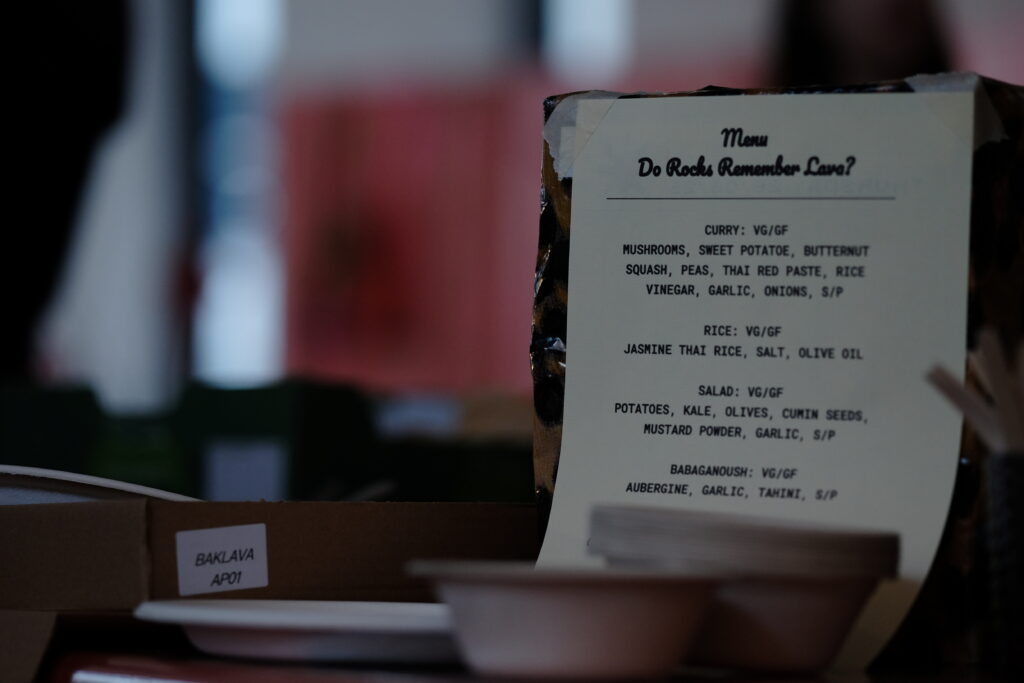 Menu
Do Rocks Remember Lava?
CURRY: VG/GF
MUSHROOMS, SWEET POTATOE, BUTTERNUT
SQUASH, PEAS, THAI RED PASTE, RICE
VINEGAR, GARLIC, ONIONS, S/P
RICE: VG/GF
JASMINE THAI RICE, SALT, OLIVE OIL
SALAD: VG/GF
POTATOES, KALE, OLIVES, CUMIN SEEDS,
MUSTARD POWDER, GARLIC, S/P
BABAGANOUSH: VG/GF
AUBERGINE, GARLIC, TAHINI, S/P
BAKLAVA
AP01